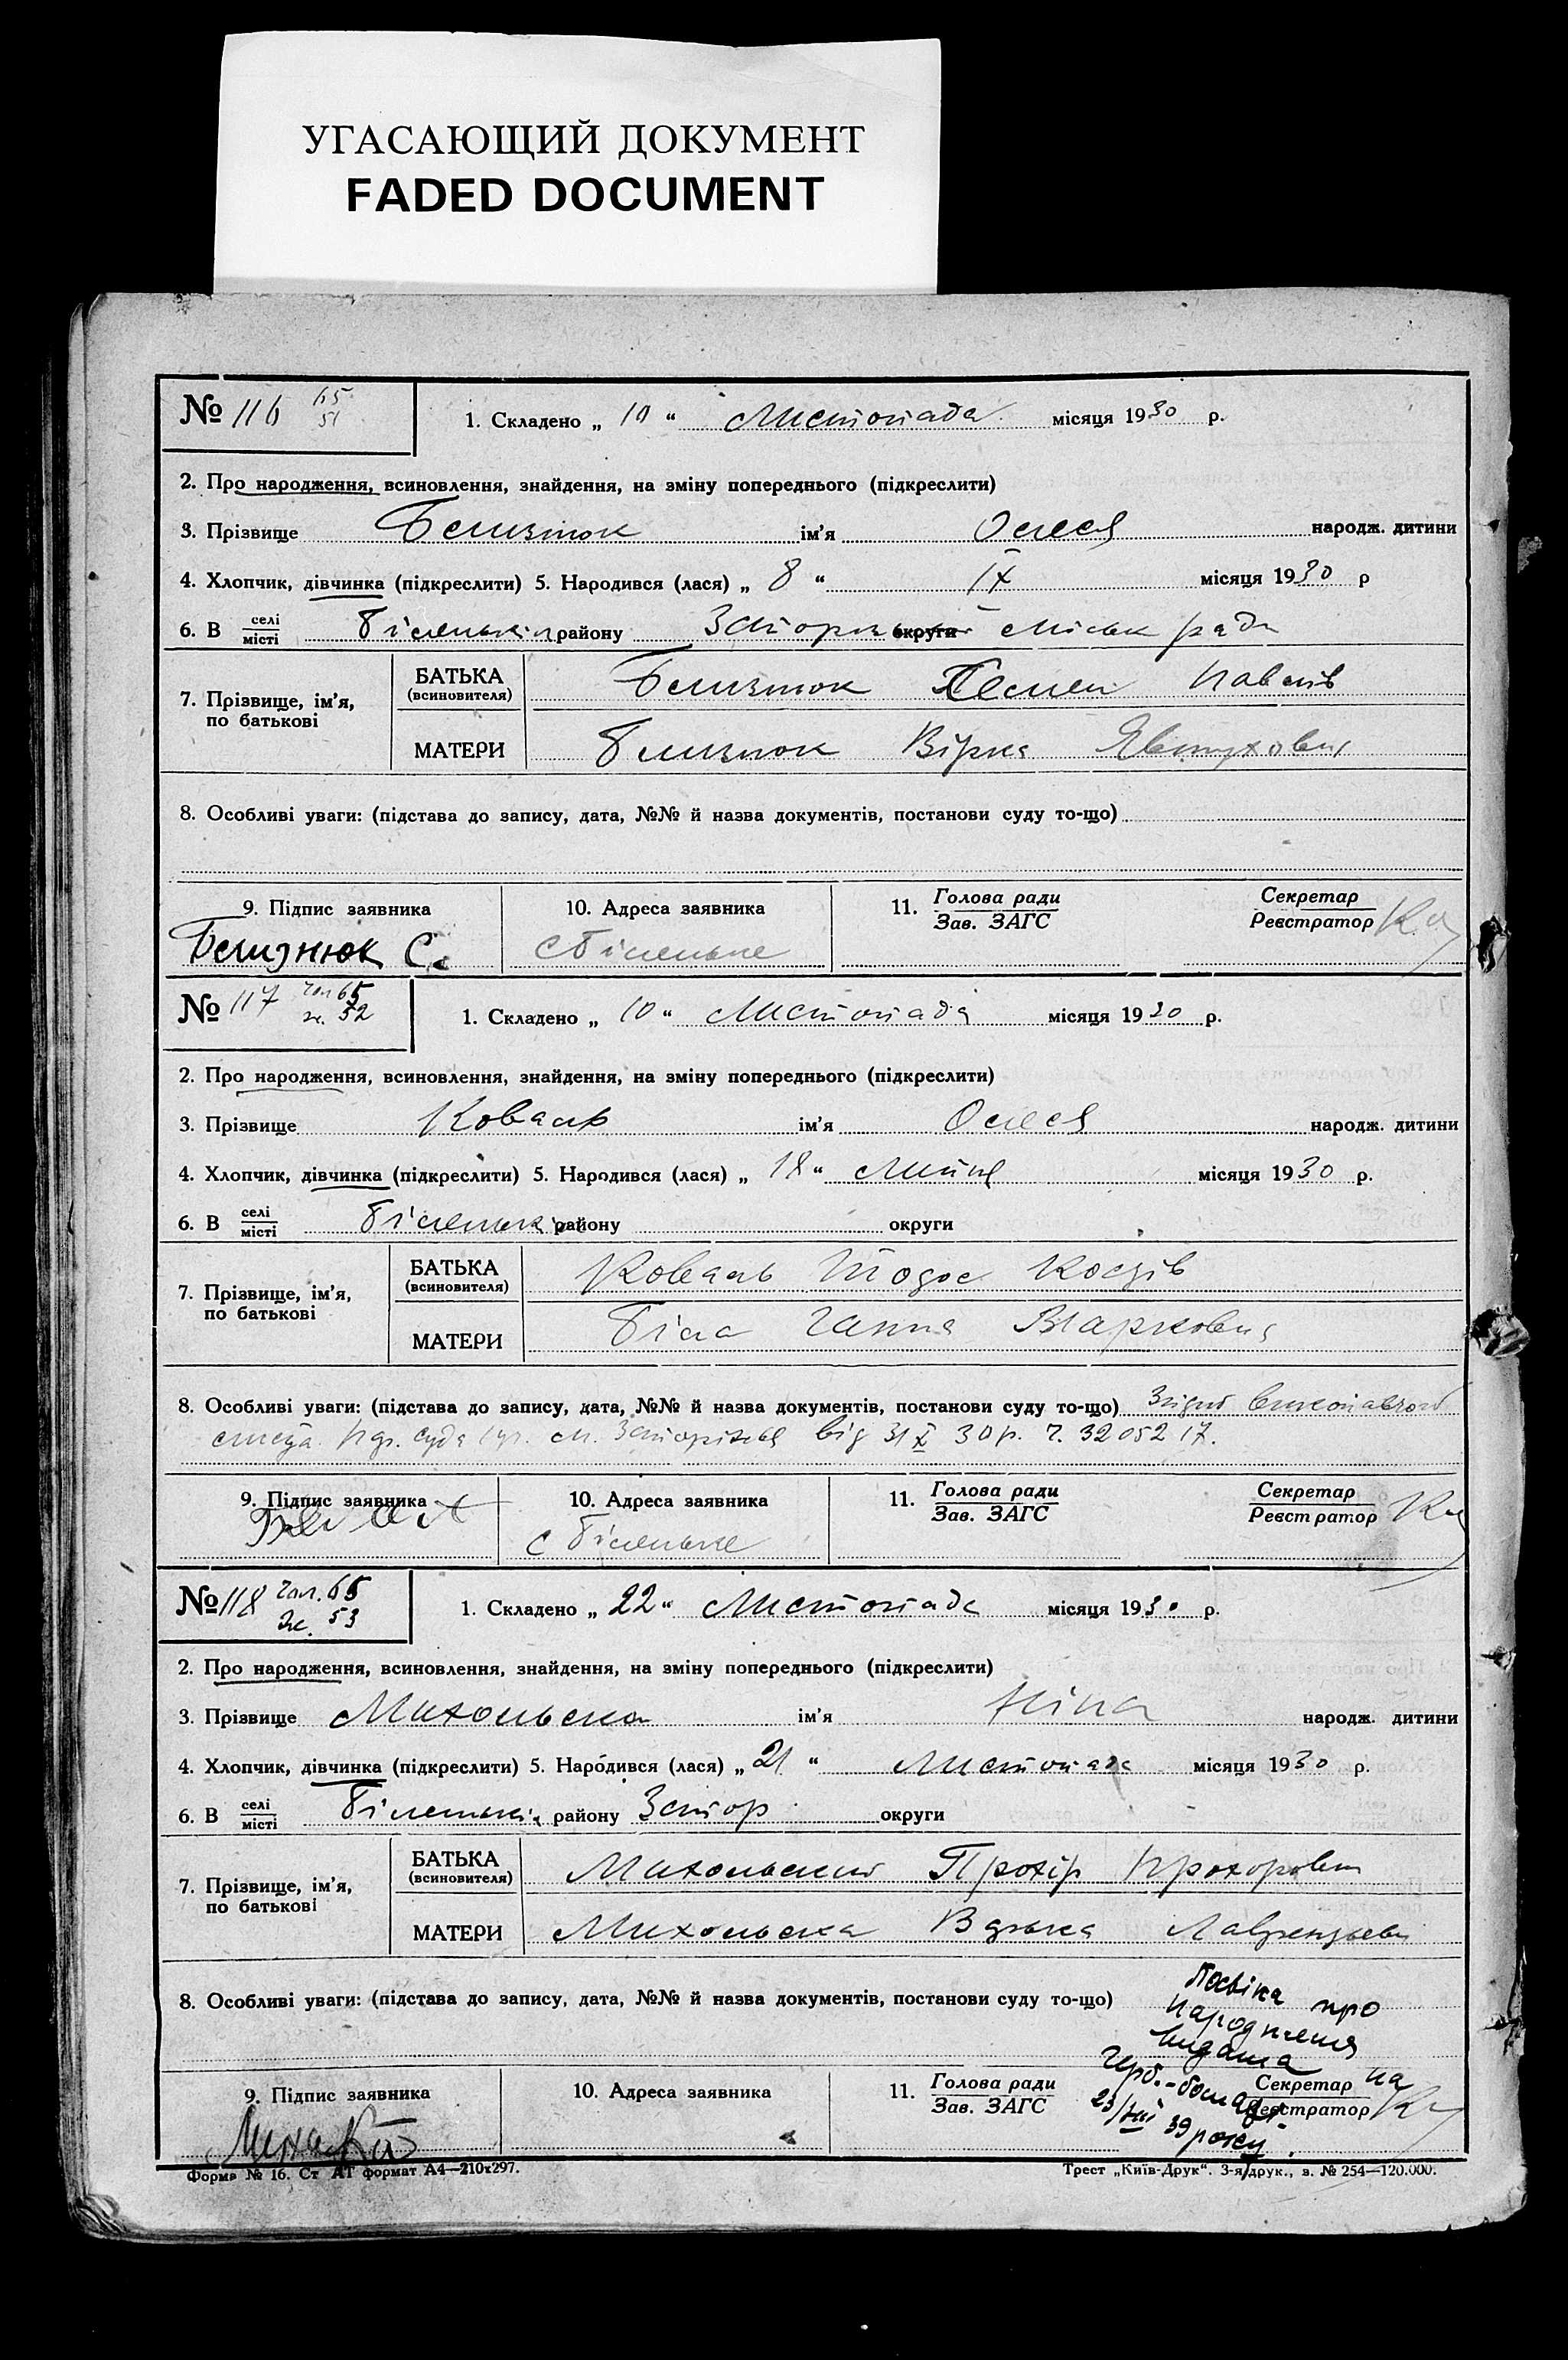 УГАСАЮЩИЙ ДОКУМЕНТ
FADED DOCUMENT
№ 116 65 51
1. Складено „ 10 “ Листопада місяця 1930 р.
2. Про народження, всиновлення, знайдення, на зміну попереднього (підкреслити)
3. Прізвище Близнюк ім'я Олеся народж. дитини
4. Хлопчик, дівчинка (підкреслити) 5. Народився (лася) „ 8 “ IX місяця 1930 р
6. В селі/місті Біленькій району Запоріз округи міськ рада
7. Прізвище, ім'я, по батькові
БАТЬКА (всиновителя) Близнюк Семен Павлів
МАТЕРИ Близнюк Вірка Явтуховна
8. Особливі уваги: (підстава до запису, дата, №№ й назва документів, постанови суду то-що)
9. Підпис заявника 10. Адреса заявника 11. Голова ради / Зав. ЗАГС Секретар / Реєстратор
Близнюк С. с Біленьке
№ 117 чол 65 ж. 52
1. Складено „ 10 “ Листопада місяця 1930 р.
2. Про народження, всиновлення, знайдення, на зміну попереднього (підкреслити)
3. Прізвище Коваль ім'я Олеся народж. дитини
4. Хлопчик, дівчинка (підкреслити) 5. Народився (лася) „ 18 “ Липня місяця 1930 р.
6. В селі/місті Біленькій району округи
7. Прізвище, ім'я, по батькові
БАТЬКА (всиновителя) Коваль Тодос
МАТЕРИ Біла Ганна Марковна
8. Особливі уваги: (підстава до запису, дата, №№ й назва документів, постанови суду то-що) Згідно виконавчого
листа Нар. суда м. Запоріжжя від 31 X 30 р. ч. 3205217.
9. Підпис заявника 10. Адреса заявника 11. Голова ради / Зав. ЗАГС Секретар / Реєстратор
с Біленьке
№ 118 чол. 65 ж. 53
1. Складено „ 22 “ Листопада місяця 1930 р.
2. Про народження, всиновлення, знайдення, на зміну попереднього (підкреслити)
3. Прізвище Михольська ім'я Ніна народж. дитини
4. Хлопчик, дівчинка (підкреслити) 5. Народився (лася) „ 21 “ Листопада місяця 1930 р.
6. В селі/місті Біленькій району Запор округи
7. Прізвище, ім'я, по батькові
БАТЬКА (всиновителя) Михольський Прохір Прохорович
МАТЕРИ Михольська Варька
8. Особливі уваги: (підстава до запису, дата, №№ й назва документів, постанови суду то-що)
Посвіка про
народження
видана на
герб.-бомазі
23/VIII 39 року.
9. Підпис заявника 10. Адреса заявника 11. Голова ради / Зав. ЗАГС Секретар / Реєстратор
Форма № 16. Ст АТ формат А4—210x297.
Трест „Київ-Друк“. 3-я друк., з. № 254—120.000.